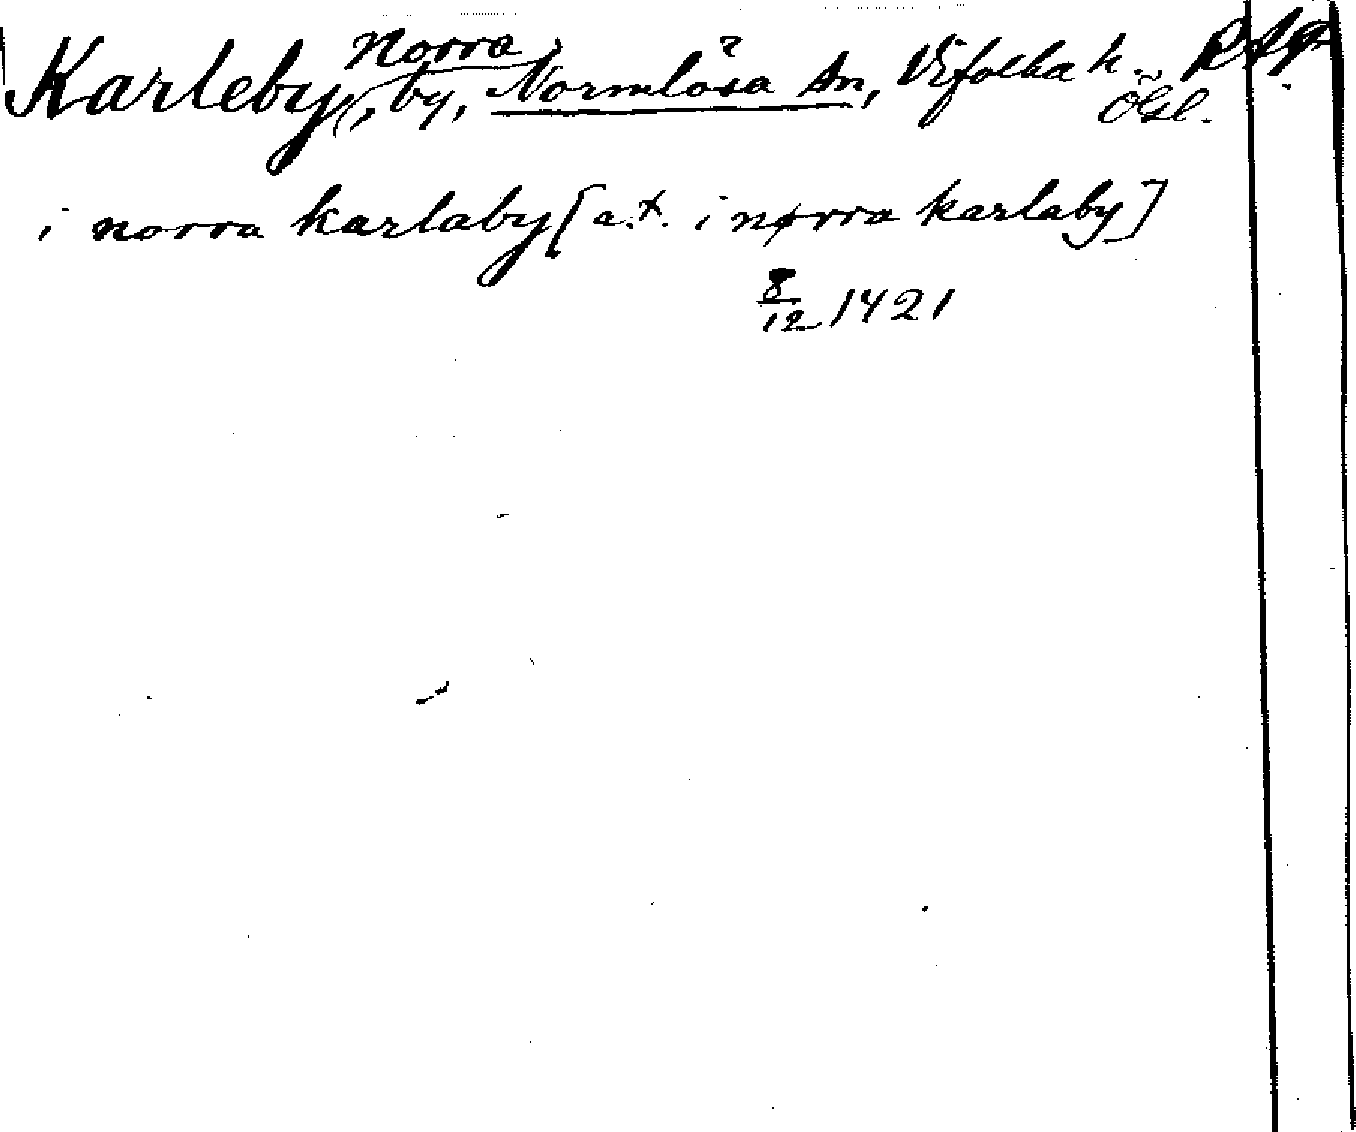 Karleby, Norra, by, Normlösa sn, Vifolka h. RApp
Ögl.
i norra karlaby [a.t. i nørra karlaby]
8/12 1421